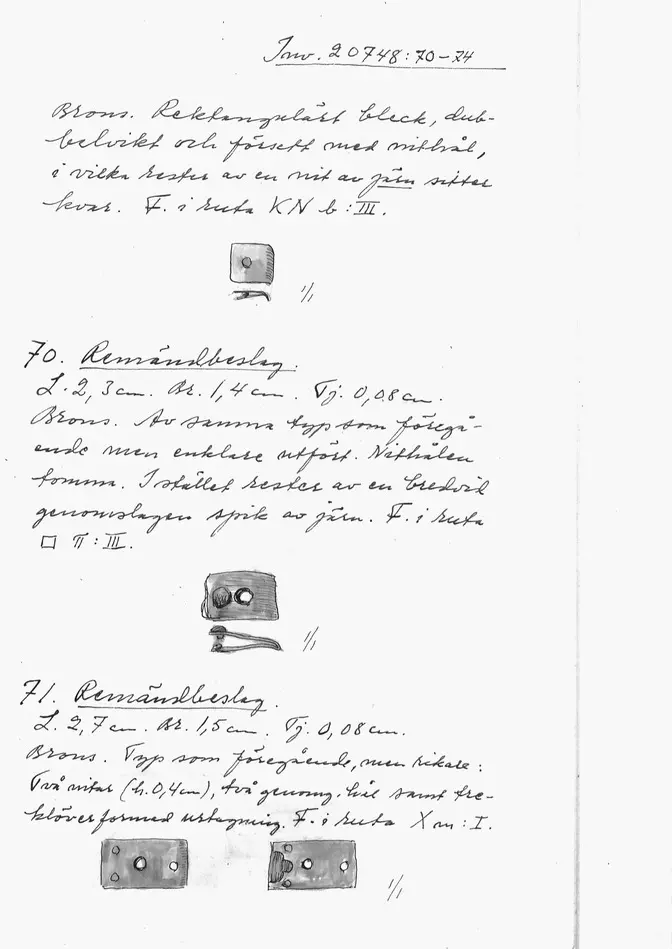 Inv. 20748:70-74
Brons. Rektangulärt bleck, dub-
belvikt och försett med nithål,
i vilka rester av en nit av järn sitter
kvar. F. i ruta KN b:III.
1/1
70. Remändbeslag.
L. 2,3 cm. Br. 1,4 cm. Tj. 0,08 cm.
Brons. Av samma typ som föregå-
ende men enklare utfört. Nithålen
tomma. I stället rester av en bredvid
genomslagen spik av järn. F. i ruta
□ π:III.
1/1
71. Remändbeslag.
L. 2,7 cm. Br. 1,5 cm. Tj. 0,08 cm.
Brons. Typ som föregående, men rikare:
Två nitar (h. 0,4 cm), två genomg. hål samt tre-
klöverformad urtagning. F. i ruta X m:I.
1/1